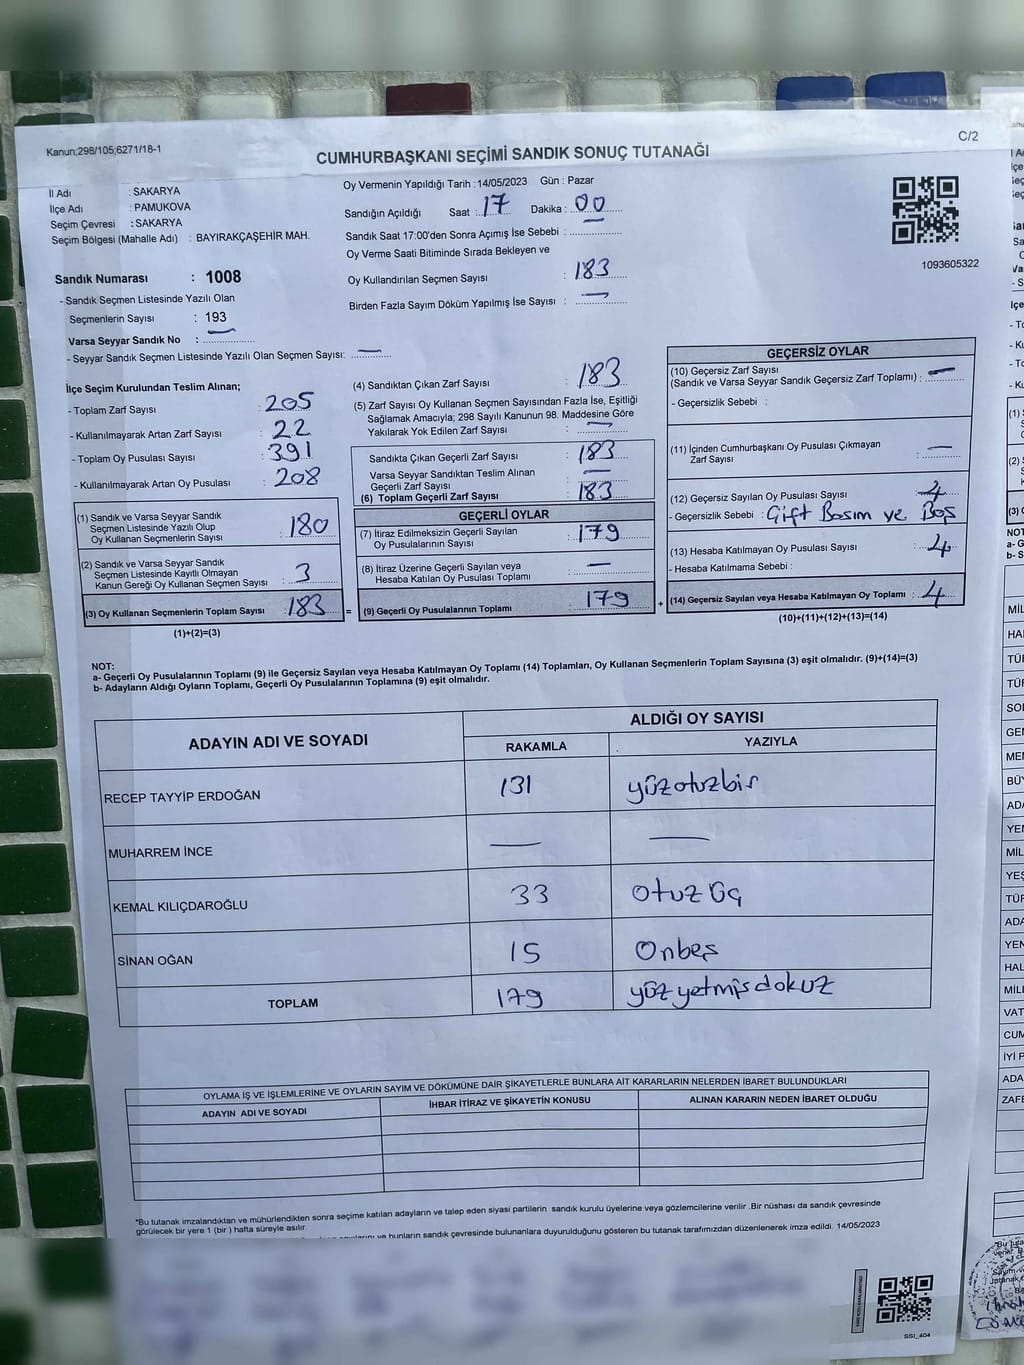 Kanun;298/105;6271/18-1
C/2
CUMHURBAŞKANI SEÇİMİ SANDIK SONUÇ TUTANAĞI
İl Adı : SAKARYA
İlçe Adı : PAMUKOVA
Seçim Çevresi : SAKARYA
Seçim Bölgesi (Mahalle Adı) : BAYIRAKÇAŞEHİR MAH.
Oy Vermenin Yapıldığı Tarih : 14/05/2023 Gün : Pazar
Sandığın Açıldığı Saat : 17 Dakika : 00
Sandık Saat 17:00'den Sonra Açımış İse Sebebi :
Oy Verme Saati Bitiminde Sırada Bekleyen ve
Oy Kullandırılan Seçmen Sayısı : 183
Birden Fazla Sayım Döküm Yapılmış İse Sayısı : —
1093605322
Sandık Numarası : 1008
- Sandık Seçmen Listesinde Yazılı Olan
Seçmenlerin Sayısı : 193
Varsa Seyyar Sandık No : —
- Seyyar Sandık Seçmen Listesinde Yazılı Olan Seçmen Sayısı: —
İlçe Seçim Kurulundan Teslim Alınan;
- Toplam Zarf Sayısı : 205
- Kullanılmayarak Artan Zarf Sayısı : 22
- Toplam Oy Pusulası Sayısı : 391
- Kullanılmayarak Artan Oy Pusulası : 208
(1) Sandık ve Varsa Seyyar Sandık
Seçmen Listesinde Yazılı Olup
Oy Kullanan Seçmenlerin Sayısı : 180
(2) Sandık ve Varsa Seyyar Sandık
Seçmen Listesinde Kayıtlı Olmayan
Kanun Gereği Oy Kullanan Seçmen Sayısı : 3
(3) Oy Kullanan Seçmenlerin Toplam Sayısı : 183 =
(1)+(2)=(3)
(4) Sandıktan Çıkan Zarf Sayısı : 183
(5) Zarf Sayısı Oy Kullanan Seçmen Sayısından Fazla İse, Eşitliği
Sağlamak Amacıyla; 298 Sayılı Kanunun 98. Maddesine Göre
Yakılarak Yok Edilen Zarf Sayısı : —
Sandıkta Çıkan Geçerli Zarf Sayısı : 183
Varsa Seyyar Sandıktan Teslim Alınan
Geçerli Zarf Sayısı : —
(6) Toplam Geçerli Zarf Sayısı : 183
GEÇERLİ OYLAR
(7) İtiraz Edilmeksizin Geçerli Sayılan
Oy Pusulalarının Sayısı : 179
(8) İtiraz Üzerine Geçerli Sayılan veya
Hesaba Katılan Oy Pusulası Toplamı : —
(9) Geçerli Oy Pusulalarının Toplamı : 179 +
GEÇERSİZ OYLAR
(10) Geçersiz Zarf Sayısı
(Sandık ve Varsa Seyyar Sandık Geçersiz Zarf Toplamı) : —
- Geçersizlik Sebebi :
(11) İçinden Cumhurbaşkanı Oy Pusulası Çıkmayan
Zarf Sayısı : —
(12) Geçersiz Sayılan Oy Pusulası Sayısı : 4
- Geçersizlik Sebebi : Çift Basım ve Boş
(13) Hesaba Katılmayan Oy Pusulası Sayısı : 4
- Hesaba Katılmama Sebebi :
(14) Geçersiz Sayılan veya Hesaba Katılmayan Oy Toplamı : 4
(10)+(11)+(12)+(13)=(14)
NOT:
a- Geçerli Oy Pusulalarının Toplamı (9) ile Geçersiz Sayılan veya Hesaba Katılmayan Oy Toplamı (14) Toplamları, Oy Kullanan Seçmenlerin Toplam Sayısına (3) eşit olmalıdır. (9)+(14)=(3)
b- Adayların Aldığı Oyların Toplamı, Geçerli Oy Pusulalarının Toplamına (9) eşit olmalıdır.
ADAYIN ADI VE SOYADI
ALDIĞI OY SAYISI
RAKAMLA YAZIYLA
RECEP TAYYİP ERDOĞAN 131 yüzotuzbir
MUHARREM İNCE — —
KEMAL KILIÇDAROĞLU 33 otuz üç
SİNAN OĞAN 15 Onbeş
TOPLAM 179 yüz yetmişdokuz
OYLAMA İŞ VE İŞLEMLERİNE VE OYLARIN SAYIM VE DÖKÜMÜNE DAİR ŞİKAYETLERLE BUNLARA AİT KARARLARIN NELERDEN İBARET BULUNDUKLARI
ADAYIN ADI VE SOYADI İHBAR İTİRAZ VE ŞİKAYETİN KONUSU ALINAN KARARIN NEDEN İBARET OLDUĞU
*Bu tutanak imzalandıktan ve mühürlendikten sonra seçime katılan adayların ve talep eden siyasi partilerin sandık kurulu üyelerine veya gözlemcilerine verilir .Bir nüshası da sandık çevresinde
görülecek bir yere 1 (bir ) hafta süreyle asılır.
ve bunların sandık çevresinde bulunanlara duyurulduğunu gösteren bu tutanak tarafımızdan düzenlenerek imza edildi. 14/05/2023
SSİ_404